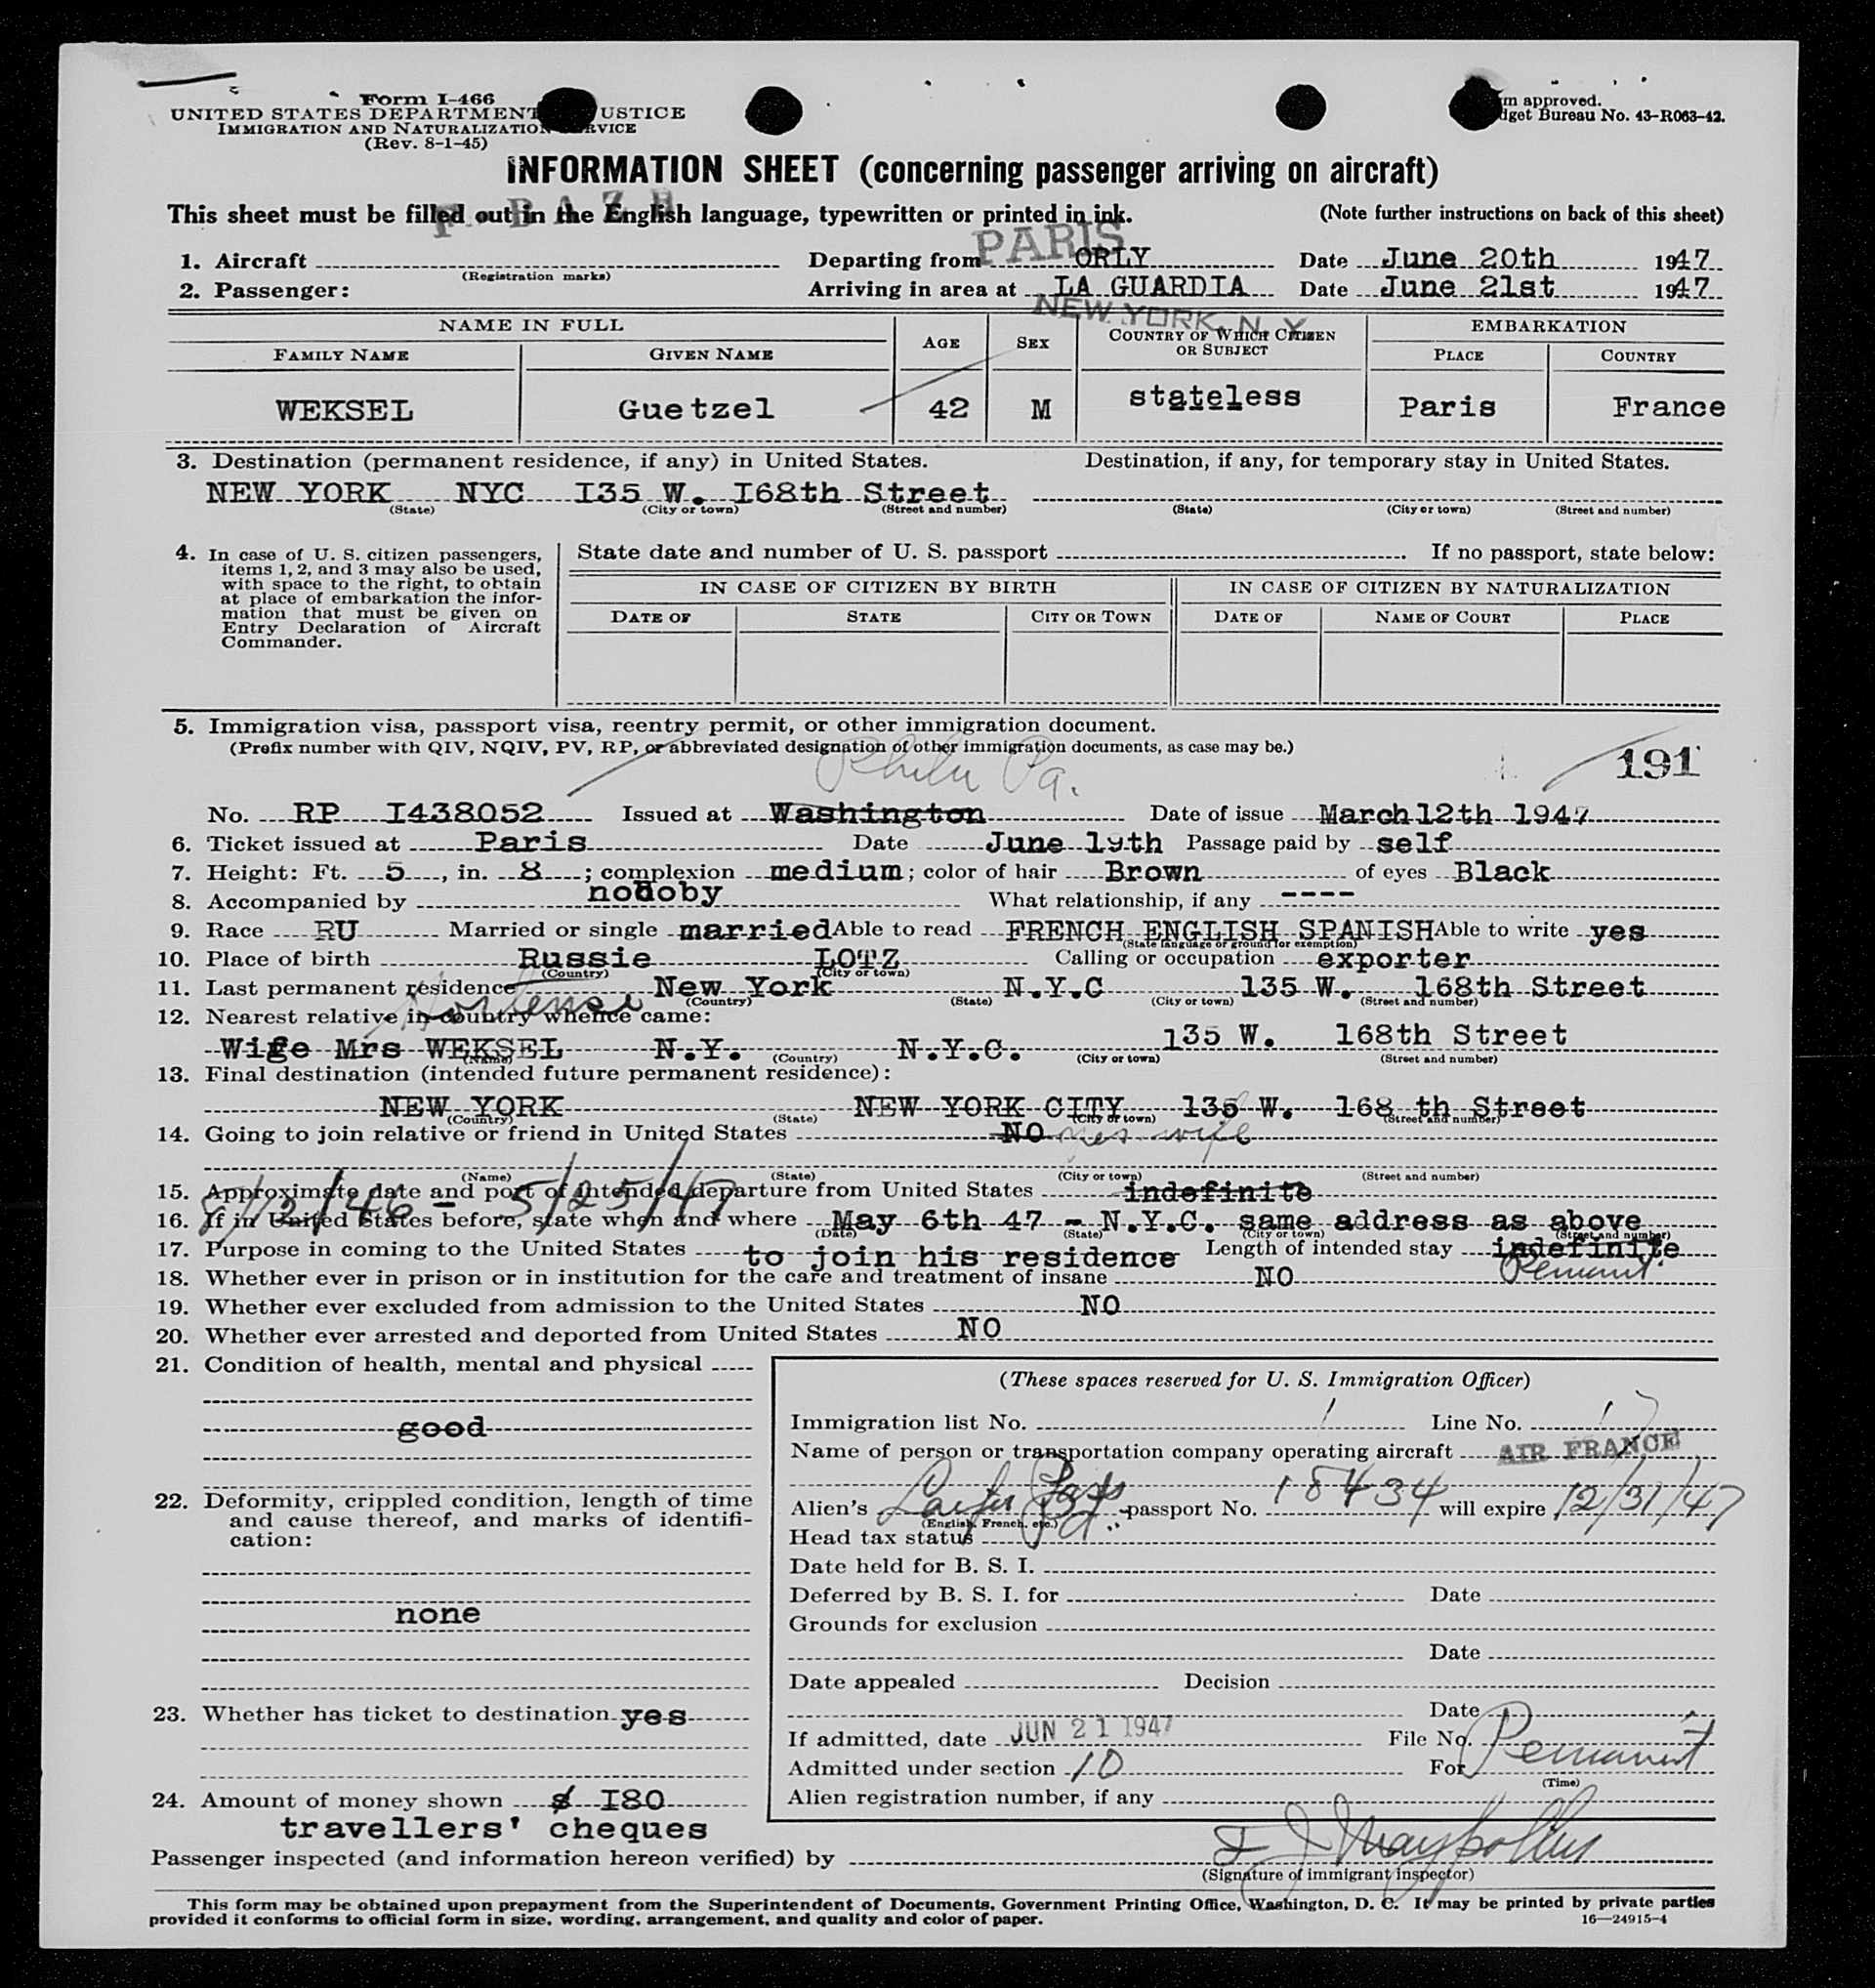 Form I-466
UNITED STATES DEPARTMENT USTICE
IMMIGRATION AND NATURALIZATION SERVICE
(Rev. 8-1-45)
m approved.
dget Bureau No. 43-R063-42.
INFORMATION SHEET (concerning passenger arriving on aircraft)
F- BAZ
This sheet must be filled out in the English language, typewritten or printed in ink. (Note further instructions on back of this sheet)
PARIS
1. Aircraft Departing from ORLY Date June 20th 1947
(Registration marks)
2. Passenger: Arriving in area at LA GUARDIA Date June 21st 1947
NEW YORK, N. Y.
NAME IN FULL AGE SEX COUNTRY OF WHICH CITIZEN OR SUBJECT EMBARKATION
FAMILY NAME GIVEN NAME PLACE COUNTRY
WEKSEL Guetzel 42 M stateless Paris France
3. Destination (permanent residence, if any) in United States. Destination, if any, for temporary stay in United States.
NEW YORK NYC I35 W. I68th Street
(State) (City or town) (Street and number) (State) (City or town) (Street and number)
4. In case of U. S. citizen passengers, items 1, 2, and 3 may also be used, with space to the right, to obtain at place of embarkation the information that must be given on Entry Declaration of Aircraft Commander.
State date and number of U. S. passport . If no passport, state below:
IN CASE OF CITIZEN BY BIRTH IN CASE OF CITIZEN BY NATURALIZATION
DATE OF STATE CITY OR TOWN DATE OF NAME OF COURT PLACE
5. Immigration visa, passport visa, reentry permit, or other immigration document.
(Prefix number with QIV, NQIV, PV, RP, or abbreviated designation of other immigration documents, as case may be.)
Phila Pa. 191
No. RP I438052 Issued at Washington Date of issue March 12th 1947
6. Ticket issued at Paris Date June 19th Passage paid by self
7. Height: Ft. 5, in. 8; complexion medium; color of hair Brown of eyes Black
8. Accompanied by nobody What relationship, if any ----
9. Race RU Married or single married Able to read FRENCH ENGLISH SPANISH Able to write yes
(State language or ground for exemption)
10. Place of birth Russie LOTZ Calling or occupation exporter
(Country) (City or town)
11. Last permanent residence New York N.Y.C 135 W. 168th Street
(Country) (State) (City or town) (Street and number)
12. Nearest relative in country whence came:
Hortense
Wife Mrs WEKSEL N.Y. N.Y.C. 135 W. 168th Street
(Name) (Country) (City or town) (Street and number)
13. Final destination (intended future permanent residence):
NEW YORK NEW YORK CITY 135 W. 168 th Street
(Country) (State) (City or town) (Street and number)
14. Going to join relative or friend in United States NO yes wife
(Name) (State) (City or town) (Street and number)
15. Approximate date and port of intended departure from United States indefinite
8/12/46 - 5/25/47
16. If in United States before, state when and where May 6th 47 - N.Y.C. same address as above
(Date) (State) (City or town) (Street and number)
17. Purpose in coming to the United States to join his residence Length of intended stay indefinite
Permanent
18. Whether ever in prison or in institution for the care and treatment of insane NO
19. Whether ever excluded from admission to the United States NO
20. Whether ever arrested and deported from United States NO
21. Condition of health, mental and physical
good
22. Deformity, crippled condition, length of time and cause thereof, and marks of identification:
none
23. Whether has ticket to destination yes
24. Amount of money shown $ I80
travellers' cheques
(These spaces reserved for U. S. Immigration Officer)
Immigration list No. 1 Line No. 17
Name of person or transportation company operating aircraft AIR FRANCE
Alien's passport No. 18434 will expire 12/31/47
(English, French, etc.)
Head tax status
Date held for B. S. I.
Deferred by B. S. I. for Date
Grounds for exclusion
Date
Date appealed Decision
Date
If admitted, date JUN 21 1947 File No.
Admitted under section 10 For Permanent
(Time)
Alien registration number, if any
Passenger inspected (and information hereon verified) by
(Signature of immigrant inspector)
This form may be obtained upon prepayment from the Superintendent of Documents, Government Printing Office, Washington, D. C. It may be printed by private parties
provided it conforms to official form in size, wording, arrangement, and quality and color of paper. 16—24915-4